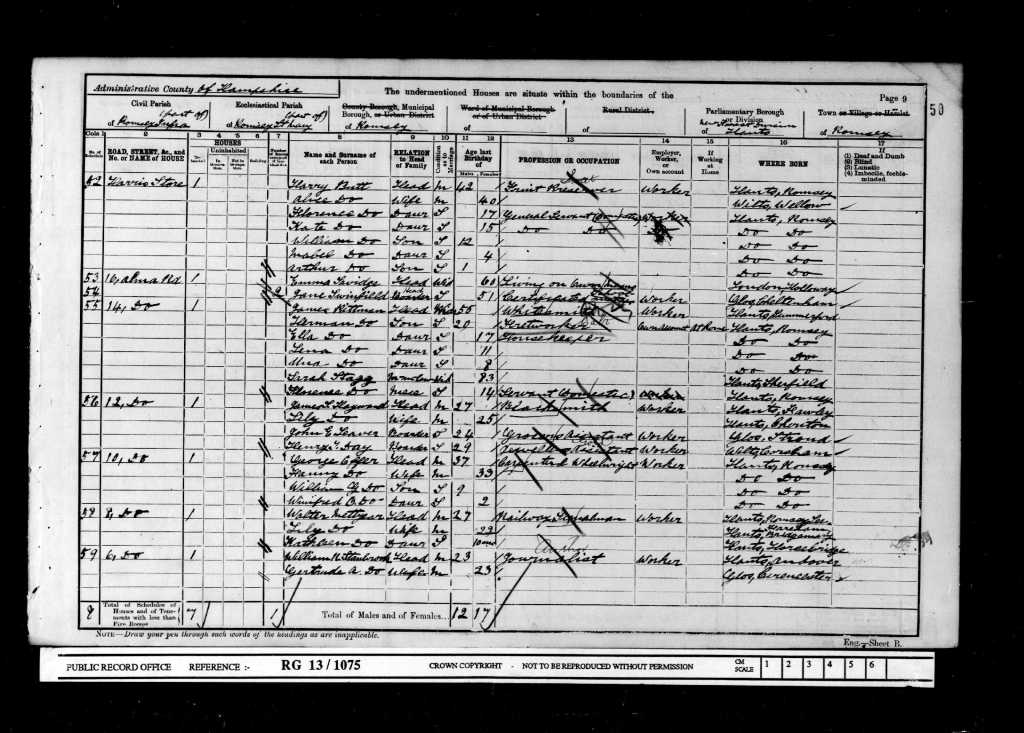 Administrative County of Hampshire
The undermentioned Houses are situate within the boundaries of the
Page 9
50
Civil Parish (part of) of Romsey Infra
Ecclesiastical Parish (part of) of Romsey St Mary
County Borough, Municipal Borough, or Urban District of Romsey
Ward of Municipal Borough or of Urban District of
Rural District of
Parliamentary Borough or Division of Hants
Town or Village or Hamlet of Romsey
Cols 1 2 3 4 5 6 7 8 9 10 11 12 13 14 15 16 17
ROAD, STREET, &c., and No. or NAME of HOUSE
HOUSES
Uninhabited
Building
Name and Surname of each Person
RELATION to Head of Family
Condition as to Marriage
Age last Birthday of
Males Females
PROFESSION OR OCCUPATION
Employer, Worker, or Own account
If Working at Home
WHERE BORN
(1) Deaf and Dumb
(2) Blind
(3) Lunatic
(4) Imbecile, feeble-minded
52 1 Harry Butt Head M 42 Worker Hants, Romsey
Alice Do Wife M 40 Wilts, Wellow
Florence Do Daur S 17 General Servant Worker Hants, Romsey
Kate Do Daur S 15 Do Do Do Do
William Do Son S 12 Do Do
Mabel Do Daur S 4 Do Do
Arthur Do Son S 1 Do Do
53 16, Alma Rd 1 Emma Head Wid 60 Living on own London Holloway
54 Jane Swinfield S 51 Certificated Worker Glos, Cheltenham
55 14, Do 1 James Pittman Head Widr 50 Whitesmith Worker Hants,
Herman Do Son S 20 Fretworker Own account At Home Hants, Romsey
Ella Do Daur S 17 Housekeeper Do Do
Lena Do Daur S 11 Do Do
Do Daur S 8 Do Do
Sarah Stagg Wid 83 Hants, Sherfield
Florence Do Niece S 14 Servant (Domestic) Worker Hants, Romsey
56 12, Do 1 James Heywood Head M 27 Blacksmith Worker Hants, Fawley
Lily Do Wife M 25 Hants,
John E Boarder S 24 Grocers Assistant Worker Glos, Stroud
Henry Day Boarder S 29 Assistant Worker Wilts, Corsham
57 10, Do 1 George Head M 37 Carpenter & Wheelwright Worker Hants, Romsey
Fanny Do Wife M 33 Do Do
William G Do Son S 9 Do Do
Winifred Do Daur S 2 Do Do
58 8, Do 1 Walter Head M 27 Railway Signalman Worker Hants, Romsey
Lily Do Wife M 22 Hants,
Kathleen Do Daur S 10 mo Hants, Horsebridge
59 6, Do 1 William H Head M 23 Journalist Worker Hants, Andover
Gertrude A. Do Wife M 23 Glos, Cirencester
8 Total of Schedules of Houses and of Tenements with less than Five Rooms 7 1 Total of Males and of Females... 12 17
NOTE—Draw your pen through such words of the headings as are inapplicable.
Eng.—Sheet B.
PUBLIC RECORD OFFICE REFERENCE :- RG 13/1075 CROWN COPYRIGHT - NOT TO BE REPRODUCED WITHOUT PERMISSION CM SCALE 1 2 3 4 5 6